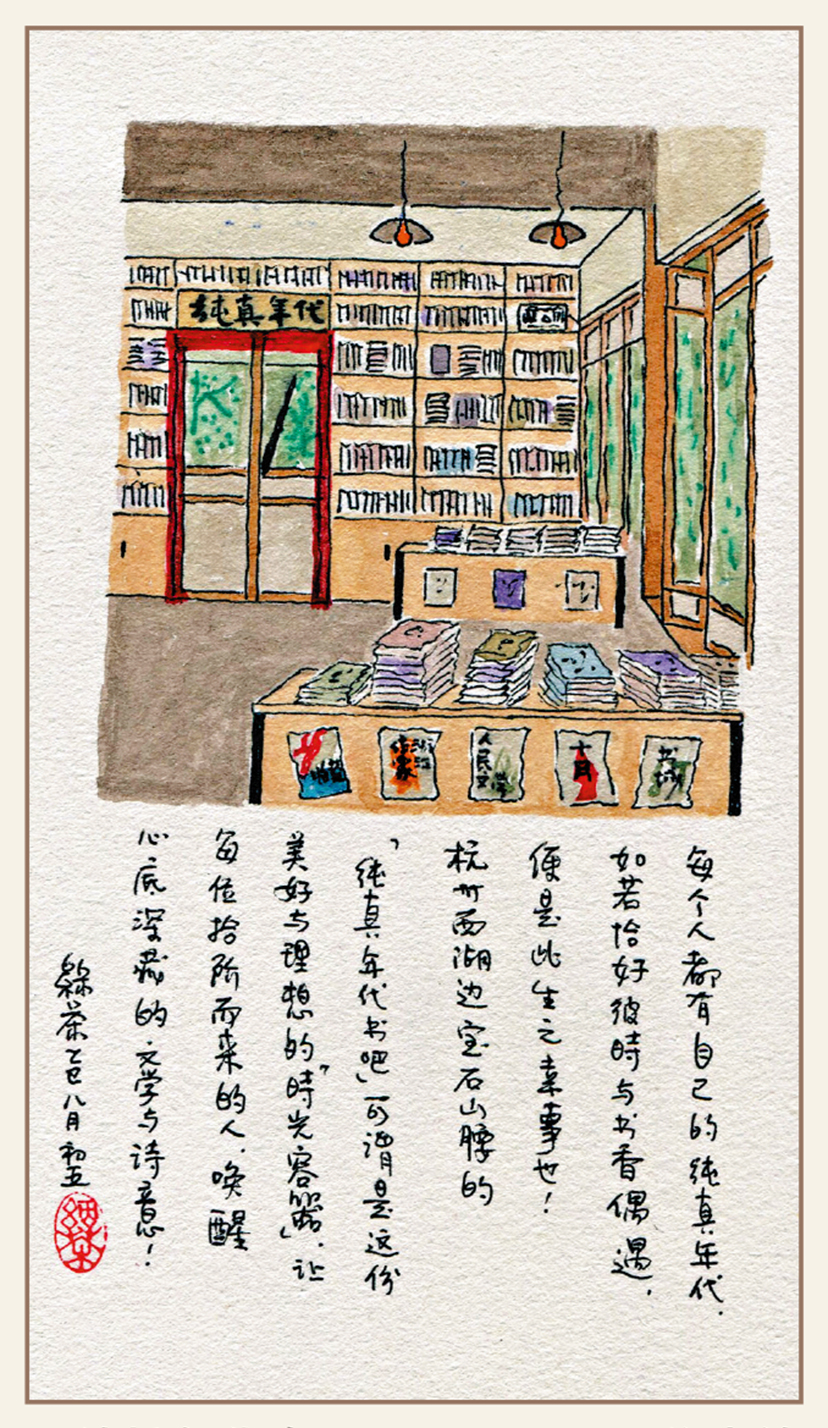 纯真年代
作家
浙江
人民文学
十月
书城
每个人都有自己的纯真年代.
如若恰好彼時与书香偶遇.
便是此生之幸事也!
杭州西湖边宝石山腰的
“纯真年代书吧”可谓是这份
美好与理想的“時光容器”.让
每位拾阶而来的人.唤醒
心底深藏的文学与诗意!
茶乙巳八月初五